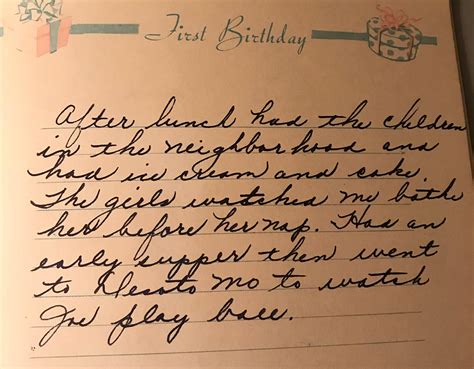 First Birthday
After lunch had the children
in the neighborhood and
had ice cream and cake.
The girls watched me bathe
her before her nap. Had an
early supper then went
to Desoto Mo to watch
Joe play ball.